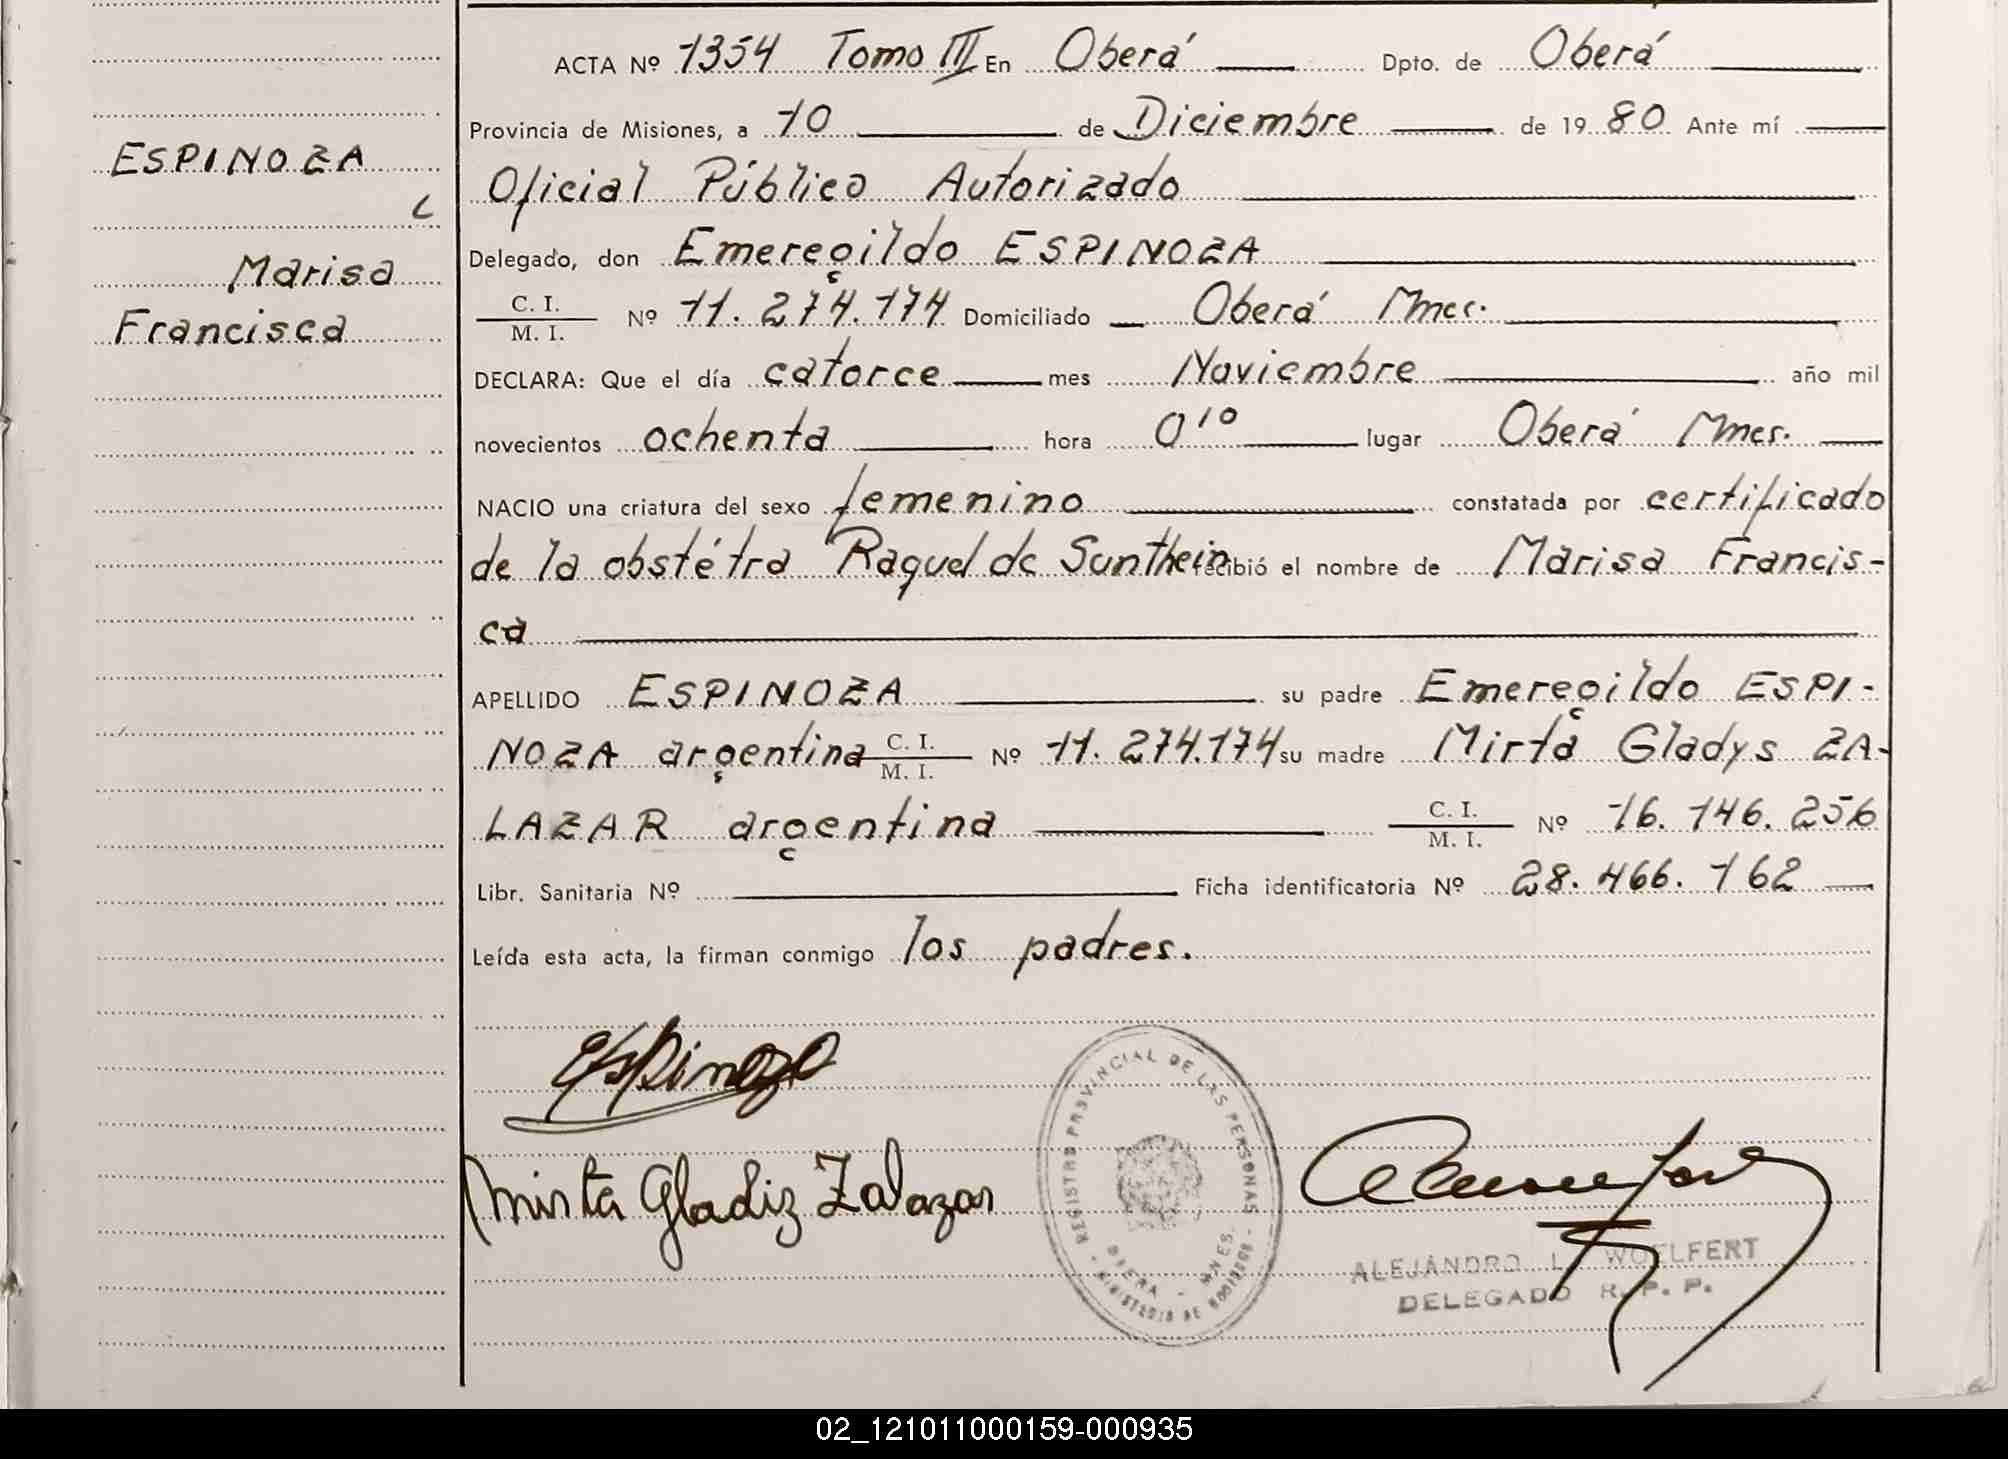 ESPINOZA
Marisa
Francisca
ACTA Nº 1354 Tomo III En Oberá Dpto. de Oberá
Provincia de Misiones, a 10 de Diciembre de 1980 Ante mí
Oficial Público Autorizado
Delegado, don Emeregildo ESPINOZA
C. I.
M. I. Nº 11.274.174 Domiciliado Oberá Mnes.
DECLARA: Que el día catorce mes Noviembre año mil
novecientos ochenta hora 0¹⁰ lugar Oberá Mnes.
NACIO una criatura del sexo femenino constatada por certificado
de la obstétra Raquel de Sunthein recibió el nombre de Marisa Francis-
ca
APELLIDO ESPINOZA su padre Emeregildo ESPI-
NOZA argentina C. I. M. I. Nº 11.274.174 su madre Mirta Gladys ZA-
LAZAR argentina C. I. M. I. Nº 16.146.256
Libr. Sanitaria Nº Ficha identificatoria Nº 28.466.162
Leída esta acta, la firman conmigo los padres.
Espinoza
Mirta Gladiz Zalazar
REGISTRO PROVINCIAL DE LAS PERSONAS
OBERA - MNES.
MINISTERIO DE GOBIERNO
ALEJANDRO L. WOELFERT
DELEGADO R. P. P.
02_121011000159-000935